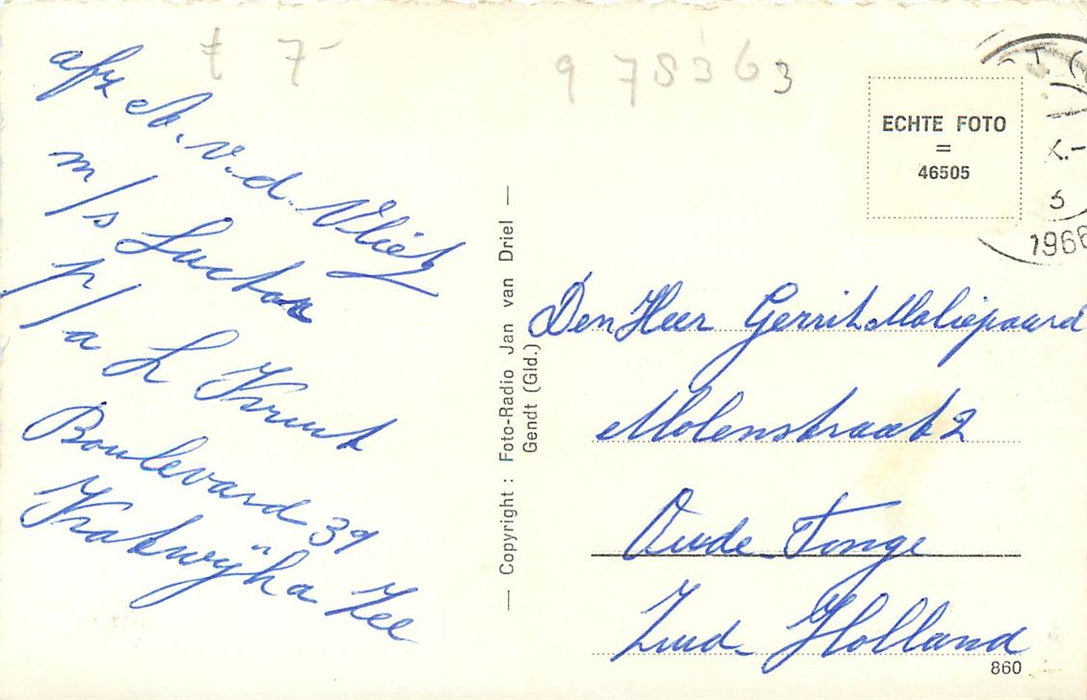 t 7-
9 78363
afz A. v. d. Vliet
m/s Luctor
p/a L Kruit
Boulevard 39
Katwijk a Zee
— Copyright : Foto-Radio Jan van Driel —
Gendt (Gld.)
ECHTE FOTO
=
46505
1966
Den Heer Gerrit Moliepaard
Molenstraat 2
Oude-Tonge
Zuid-Holland
860